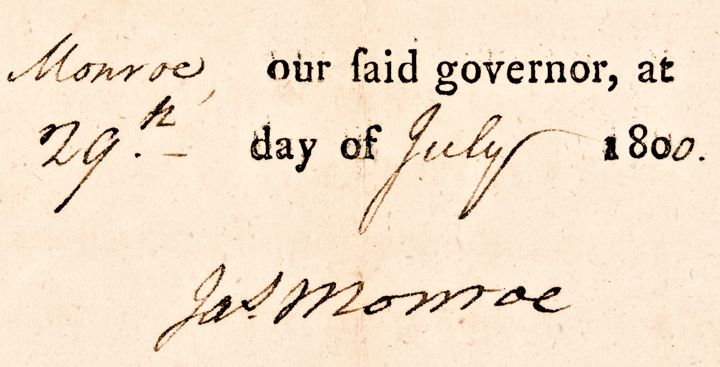 Monroe, our ſaid governor, at
29.th day of July 1800.
Jas. Monroe